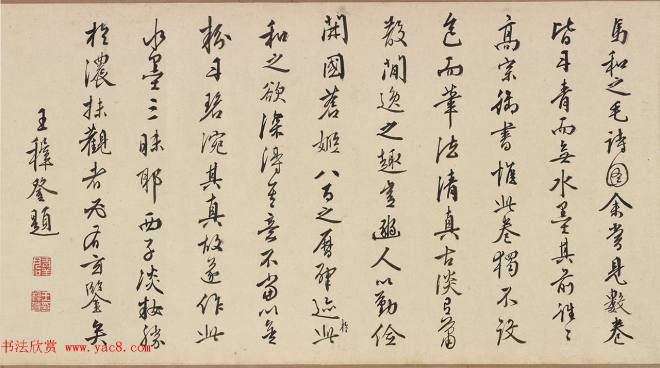 馬和之毛詩圖余嘗見數卷
皆丹青而無水墨其前
高宗補書惟此卷獨不設
色而筆法清真古淡有蕭
散閒逸之趣豳人以勤儉
開國蒼姬八百之曆肇迹於此
和之欲深得其意不當以
丹碧溷其真故遂作此
水墨三昧耶西子淡妝勝
於濃抹觀者必有玄鑒矣
王穉登題
书法欣赏 www.yac8.com